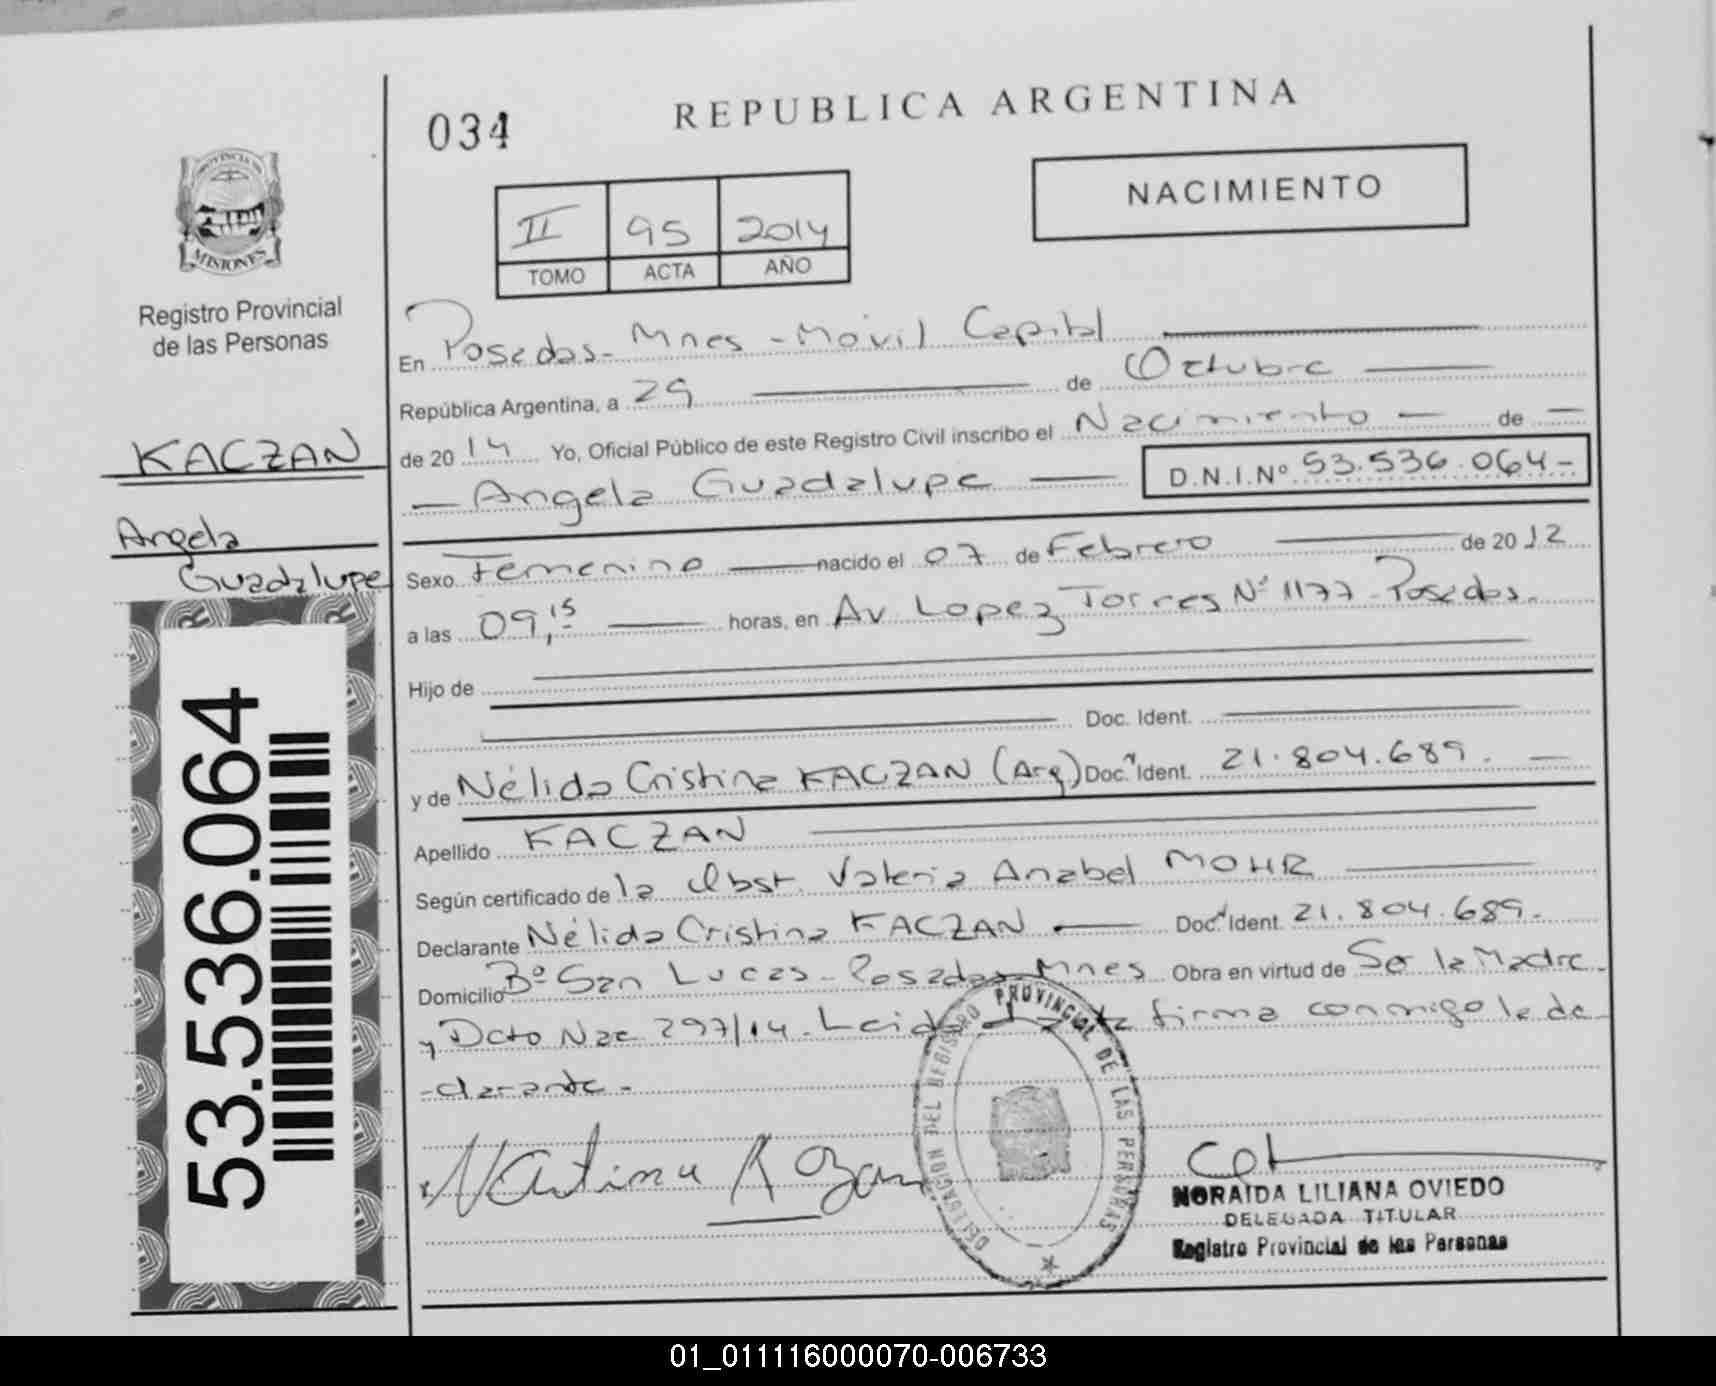 034
REPUBLICA ARGENTINA
PROVINCIA DE
MISIONES
Registro Provincial
de las Personas
II 95 2014
TOMO ACTA AÑO
NACIMIENTO
KACZAN
Angela
Guadalupe
53.536.064
En Posadas - Mnes - Móvil Capital
República Argentina, a 29 de Octubre
de 2014 Yo, Oficial Público de este Registro Civil inscribo el Nacimiento — de —
— Angela Guadalupe — D.N.I.Nº 53.536.064-
Sexo Femenino — nacido el 07 de Febrero — de 2012
a las 09,15 — horas, en Av. Lopez Torres Nº 1177 - Posadas.
Hijo de
Doc. Ident.
y de Nélida Cristina KACZAN (Arg) Doc. Ident. 21.804.689. —
Apellido KACZAN
Según certificado de la Obst. Valeria Anabel MOHR
Declarante Nélida Cristina KACZAN — Doc. Ident. 21.804.689.
Domicilio Bº San Lucas - Posadas - Mnes Obra en virtud de Ser la Madre
y Dcto Nac 297/14. Leida el acta firma conmigo la de
-clarante-
DELEGACION DEL REGISTRO PROVINCIAL DE LAS PERSONAS
NORAIDA LILIANA OVIEDO
DELEGADA TITULAR
Registro Provincial de las Personas
01_011116000070-006733